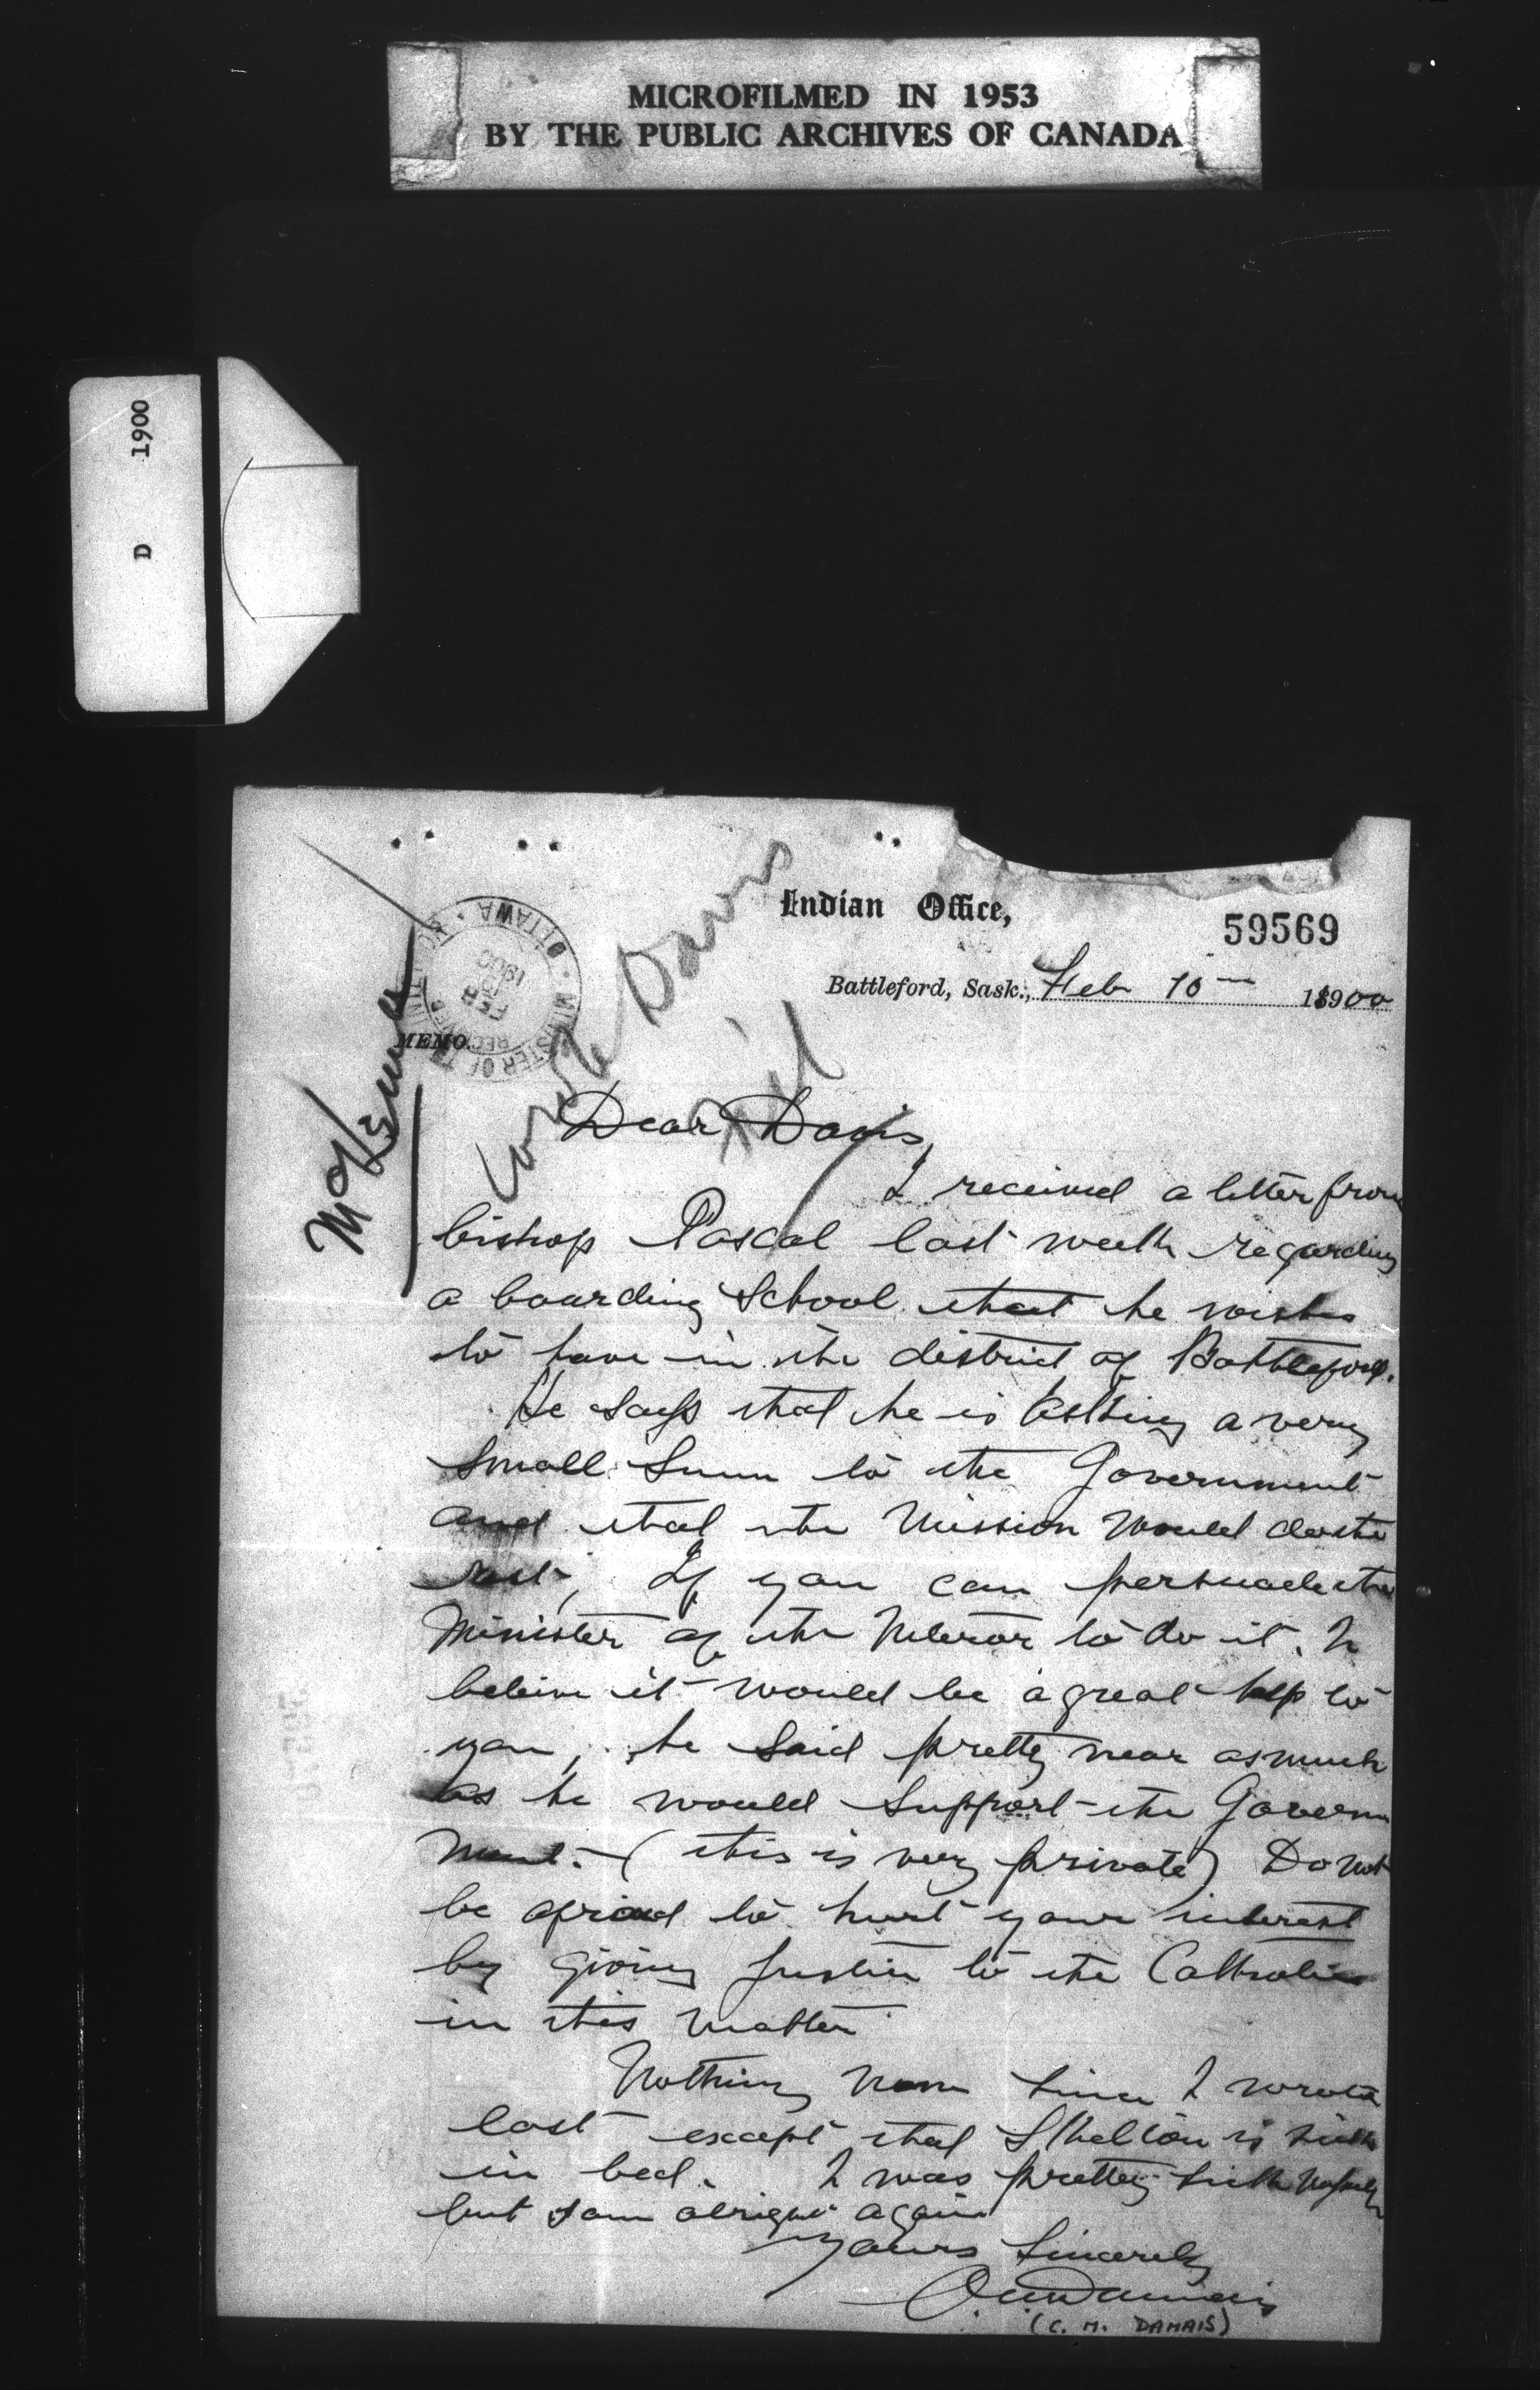 MICROFILMED IN 1953
BY THE PUBLIC ARCHIVES OF CANADA
D 1900
Indian Office,
59569
Battleford, Sask., Feb 10 1900
MEMO.
MINISTER OF THE INTERIOR OTTAWA
RECEIVED
1900
McKenna
Davis
Dear Davis,
I received a letter from
bishop Pascal last week regarding
a boarding School that he wishes
to have in the district of Battleford.
He says that he is asking a very
small Sum to the Government
and that the Mission would do the
rest, If you can persuade the
Minister of the Interior to do it. I
beleive it would be a great help to
you, he said pretty near as much
as he would Support the Govern
ment. (this is very private) Do not
be afraid to hurt your interest
by giving Justice to the Catholics
in this matter
Nothing new since I wrote
last except that Skelton is sick
in bed. I was pretty sick myself
but I am alright again
Yours Sincerely
(C. M. DAMAIS)